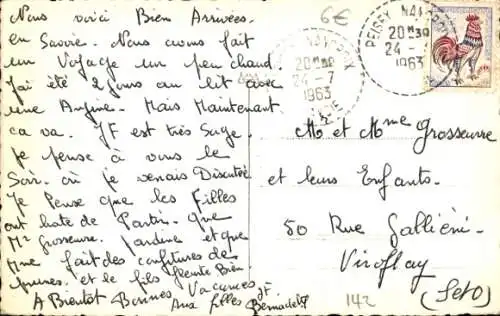 Nous voici Bien Arrivées.
en Savoie. Nous avons fait
un Voyage un peu chaud
J'ai été 2 jours au lit avec
une Angine. Mais Maintenant
ca va. JF est très Sage.
je pense à vous le
Soir. où je venais Discuter
Je Pense que les Filles
ont hate de Partir. que
Mr Grosseuvre. jardine et que
Mme fait des confitures de
prunes. et le fils Bien.
A Bientot Bonnes Vacances
Aux filles JF.
Bernadette
6€
20H30
24-7
1963
PEISEY NANCROIX
20H30
24-7
1963
M et Mme Grosseuvre
et leurs Enfants.
50 Rue Galliéni.
Viroflay
(S et O)
142